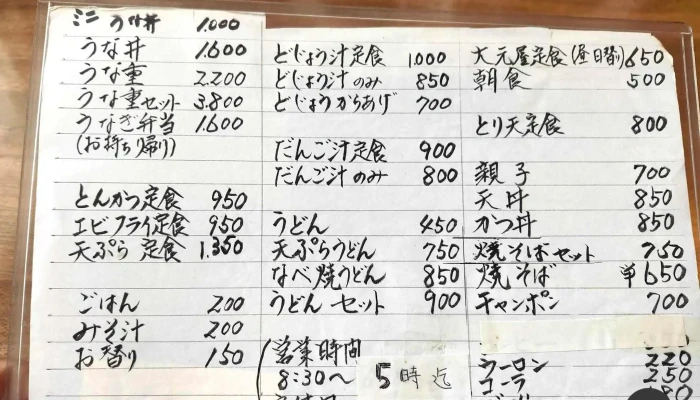 ミニ うな丼 1.000
うな丼 1.600
うな重 2.200
うな重セット 3.800
うなぎ弁当 1.600
(お持ち帰り)
とんかつ定食 950
エビフライ定食 950
天ぷら 定食 1.350
ごはん 200
みそ汁 200
お替り 150
どじょう汁定食 1.000
どじょう汁のみ 850
どじょうからあげ 700
だんご汁定食 900
だんご汁のみ 800
うどん 450
天ぷらうどん 750
なべ焼うどん 850
うどん セット 900
営業時間
8:30〜 5時迄
大元屋定食(昼日替り) 650
朝食 500
とり天定食 800
親子 700
天丼 850
かつ丼 850
焼そばセット 750
焼そば 単650
チャンポン 700
ウーロン 220
コーラ 250